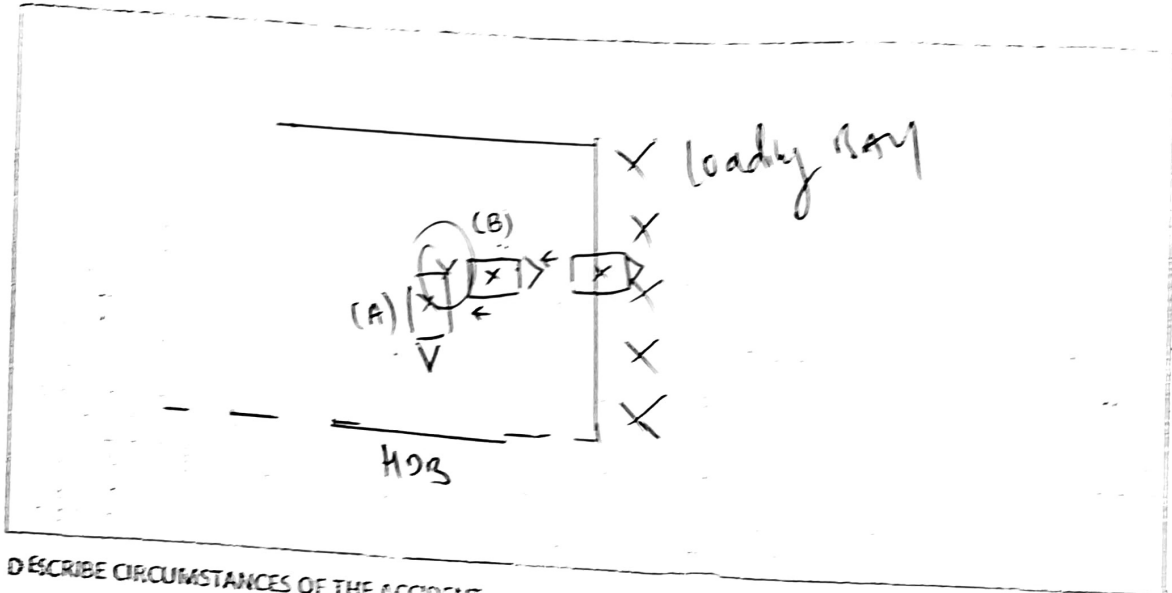 Loading BAY
(B)
(A)
HDB
DESCRIBE CIRCUMSTANCES OF THE ACCIDENT